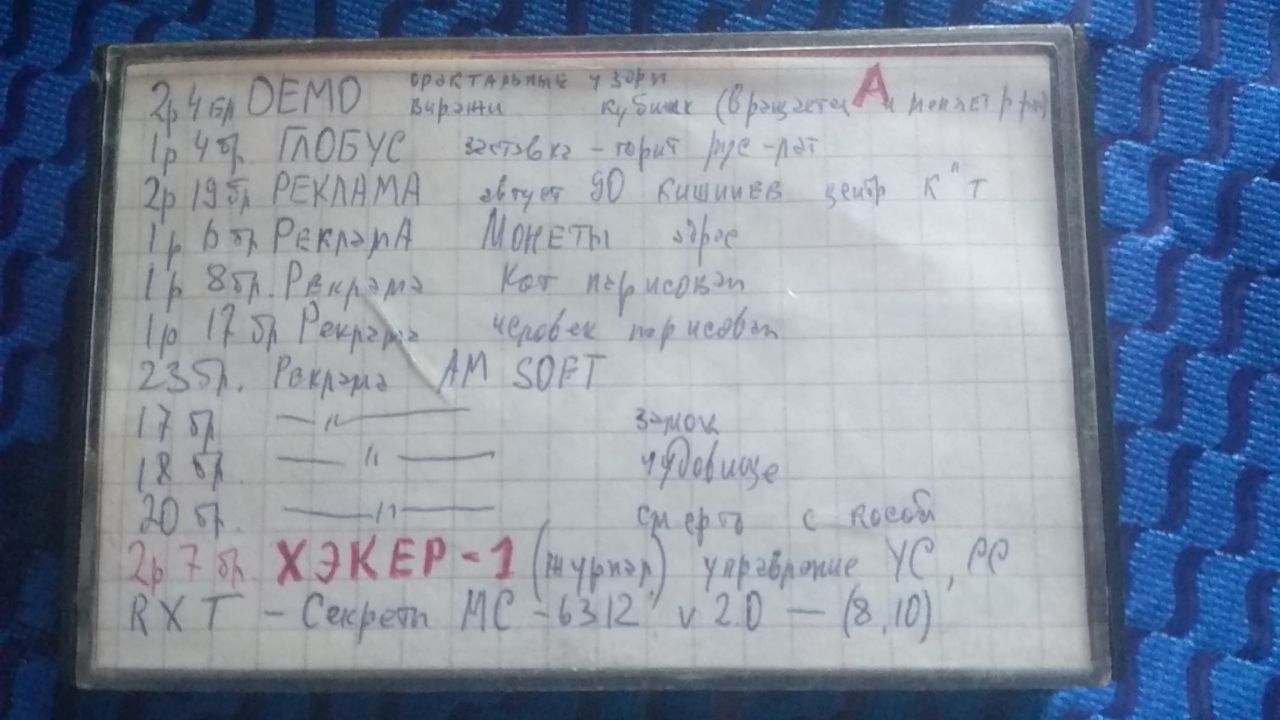 2р 4 бр DEMO фрактальные узоры
виражи кубик (вращается и меняет
A
1р 4 бр. ГЛОБУС заставка - горит рус -лат
2р 19 бр РЕКЛАМА август 90 КИШИНЕВ центр К"Т
1р 6 бр РЕКлАмА МОНЕТЫ адрес
1р 8 бр. Реклама Кот нарисован
1р 17 бр Реклама человек нарисован
23 бр. Реклама AM SOFT
17 бр — " — замок
18 бр. — " — чудовище
20 бр. — " — смерть с косой
2р 7 бр. ХЭКЕР-1 (журнал) управление УС, РС
RXT - Секреты МС -6312 v 2.0 — (8,10)